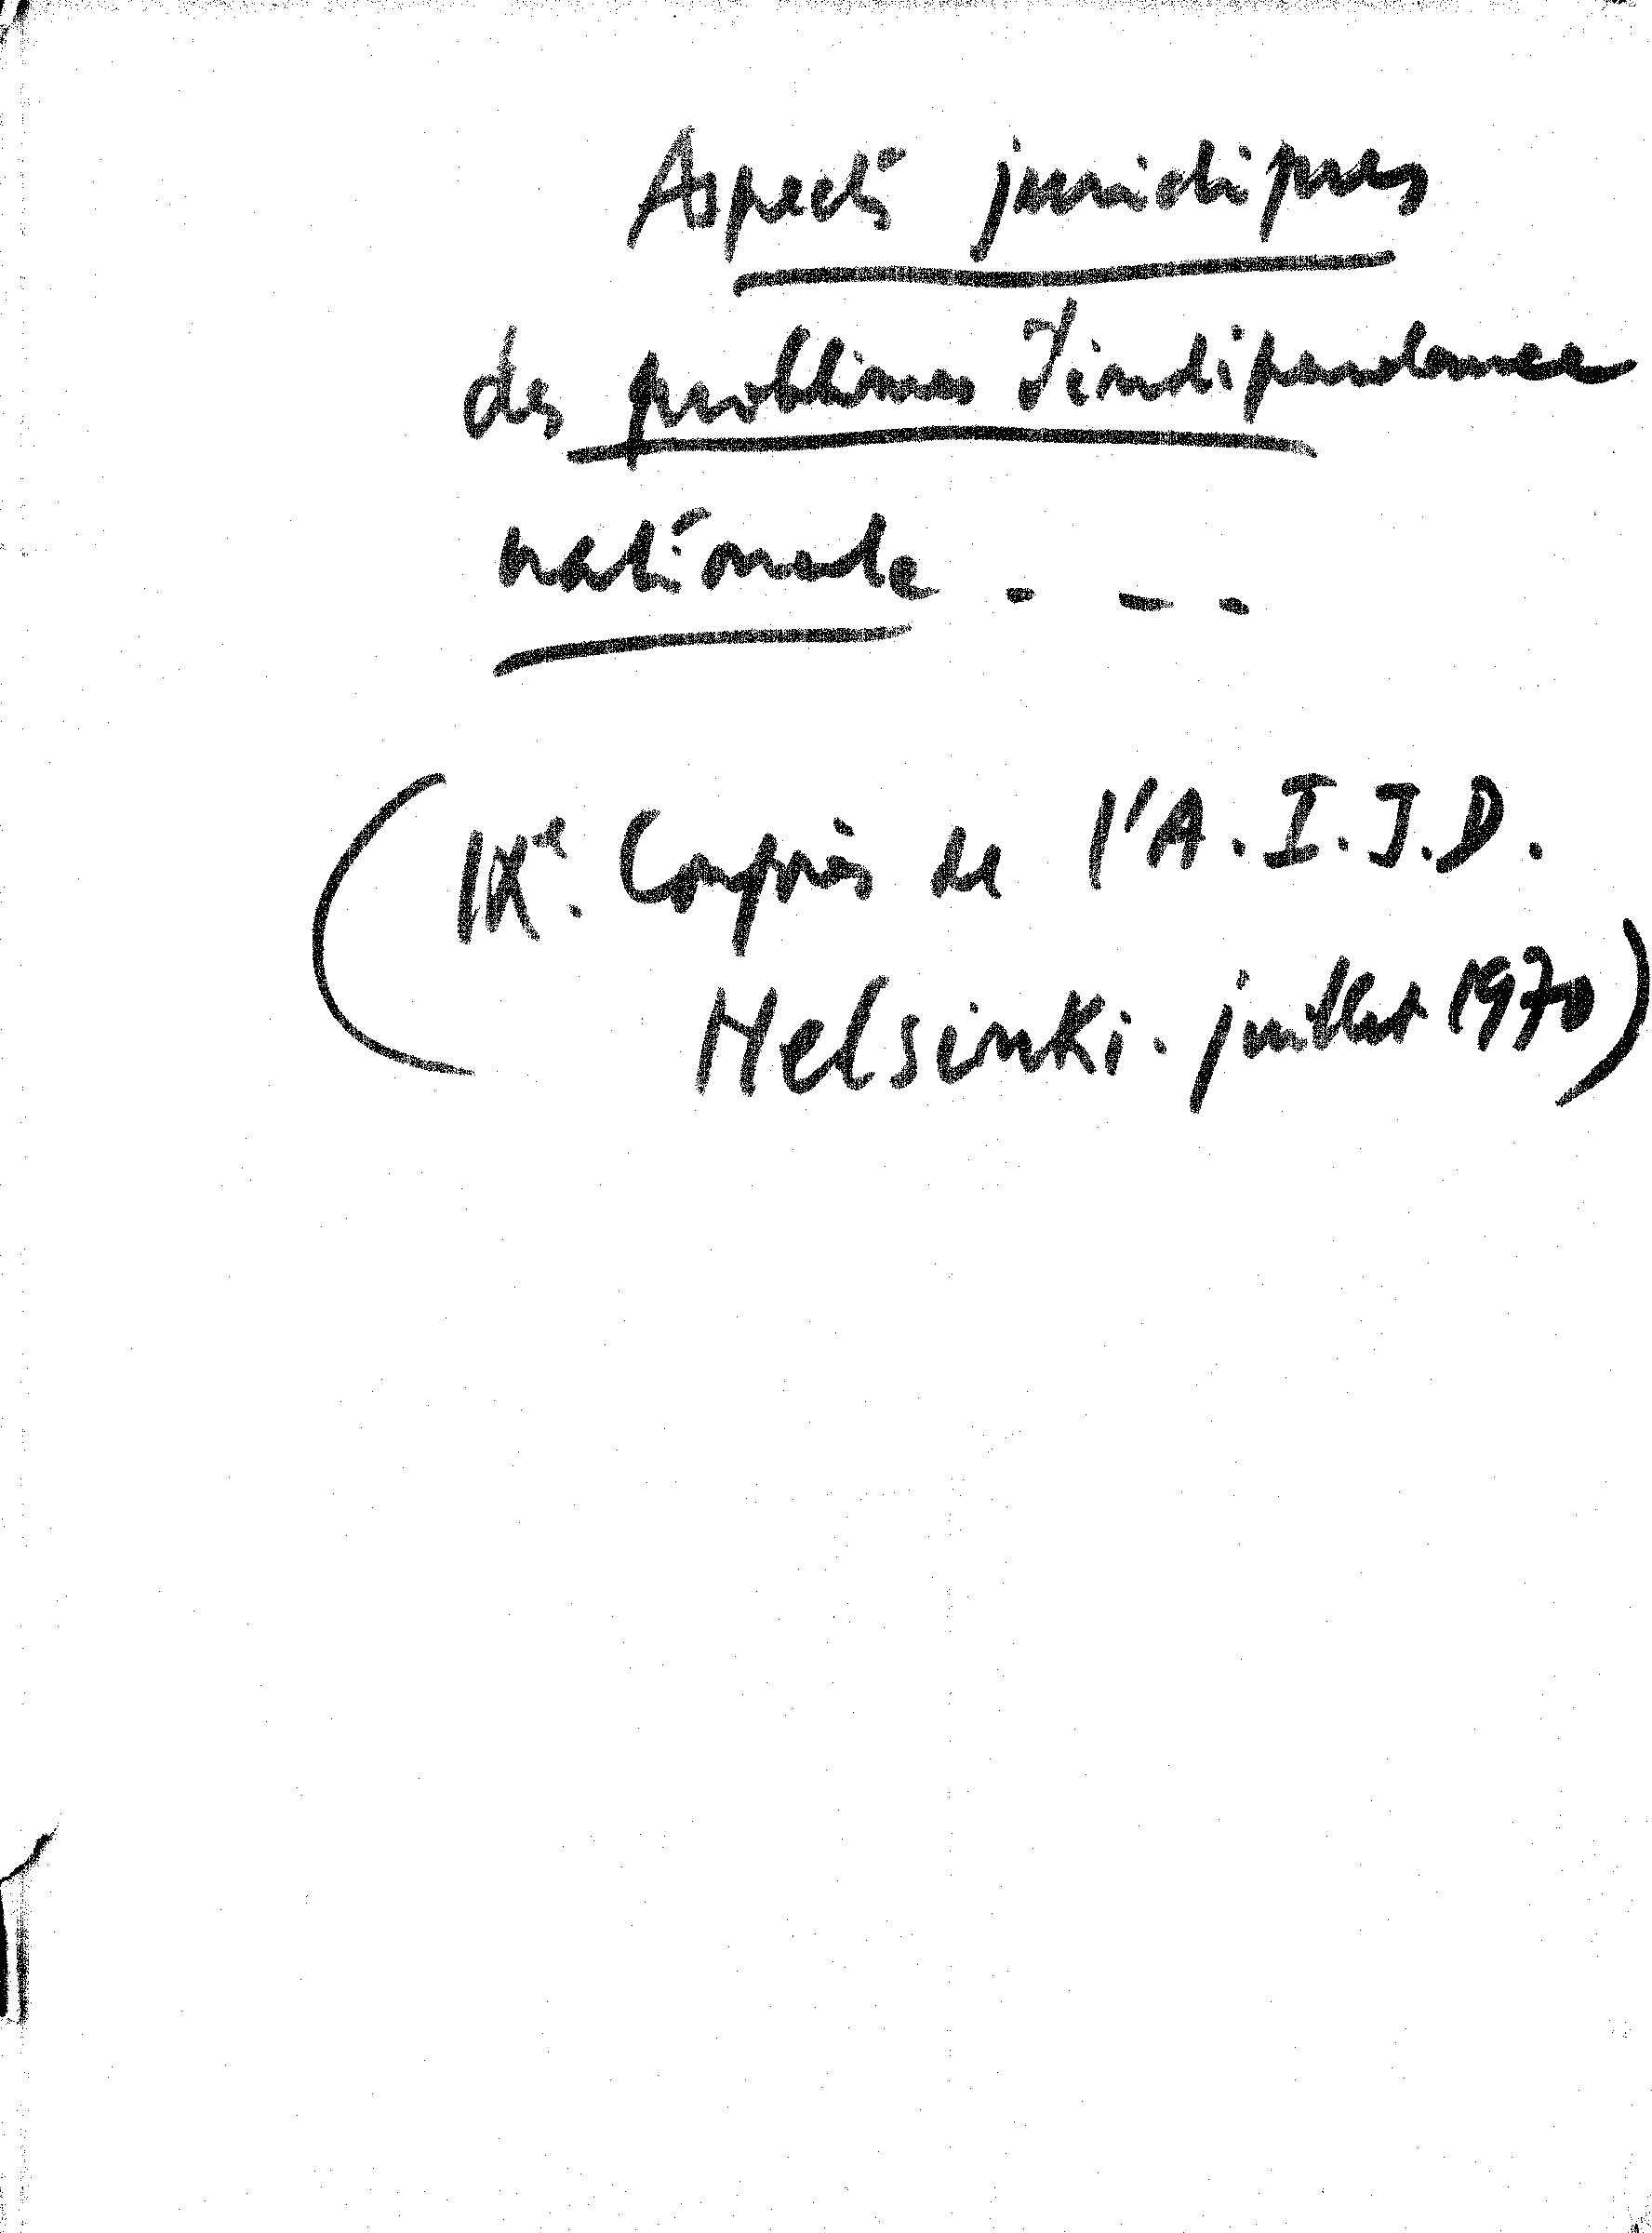 Aspects juridiques
des problèmes d'indépendance
nationale . - -
(IXe. Congrès de l'A.I.J.D.
Helsinki. juillet 1970)